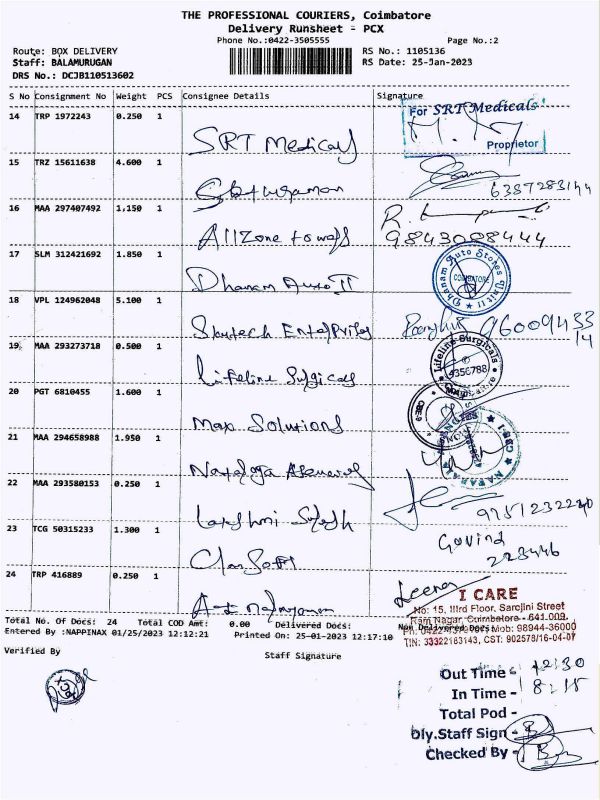 THE PROFESSIONAL COURIERS, Coimbatore
Delivery Runsheet - PCX
Phone No.:0422-3505555 Page No.:2
Route: BOX DELIVERY RS No.: 1105136
Staff: BALAMURUGAN RS Date: 25-Jan-2023
DRS No.: DCJB110513602
S No Consignment No Weight PCS Consignee Details Signature
14 TRP 1972243 0.250 1 SRT Medicals For SRT Medicals
Proprietor
15 TRZ 15611638 4.600 1 6387283144
16 MAA 297407492 1.150 1 Allzone towels R.
9843088444
17 SLM 312421692 1.850 1 Dhanam Auto II Dhanam Auto Stores Unit II COIMBATORE
18 VPL 124962048 5.100 1 Skytech Enterprises 96009433
14
19 MAA 293273718 0.500 1 Lifeline Surgicals Lifeline Surgicals 9356788
20 PGT 6810455 1.600 1 Max Solutions
21 MAA 294658988 1.950 1
22 MAA 293580153 0.250 1 Lakshmi 9751232240
23 TCG 50315233 1.300 1 Govind
223446
24 TRP 416889 0.250 1 Leena
I CARE
No: 15, IIIrd Floor, Sarojini Street
Ram Nagar, Coimbatore - 641 009.
Mob: 98944-36000
TIN: 33322183143, CST: 902578/16-04-07
Total No. Of Docs: 24 Total COD Amt: 0.00 Delivered Docs: Non Delivered Docs:
Entered By :NAPPINAX 01/25/2023 12:12:21 Printed On: 25-01-2023 12:17:10
Verified By Staff Signature
Out Time - 12:30
In Time - 8:15
Total Pod -
Dly.Staff Sign -
Checked By -